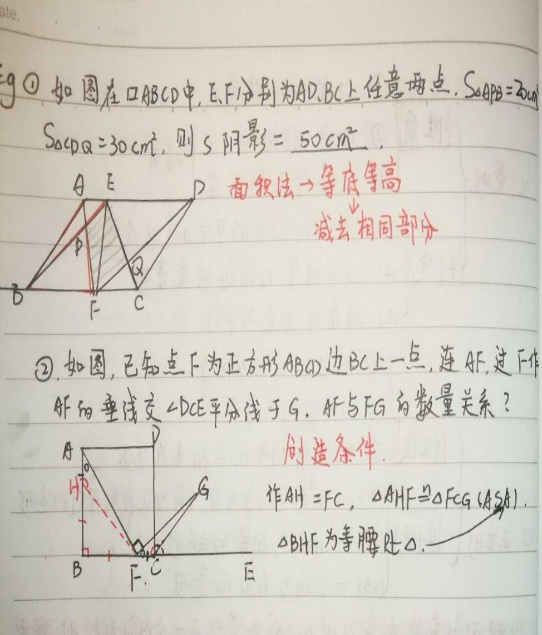 ate.
Eg ① 如图在□ABCD中,E.F分别为AD.BC上任意两点. S△APB=20cm²
S△CDQ=30cm², 则S阴影= 50cm² .
面积法→等底等高
↓
减去相同部分
A E D
P
Q
B F C
②.如图,已知点F为正方形ABCD边BC上一点,连AF,过F作
AF的垂线交∠DCE平分线于G. AF与FG的数量关系?
创造条件.
A D
H G
作AH=FC, △AHF≌△FCG(ASA).
△BHF为等腰Rt△.
B F. C E